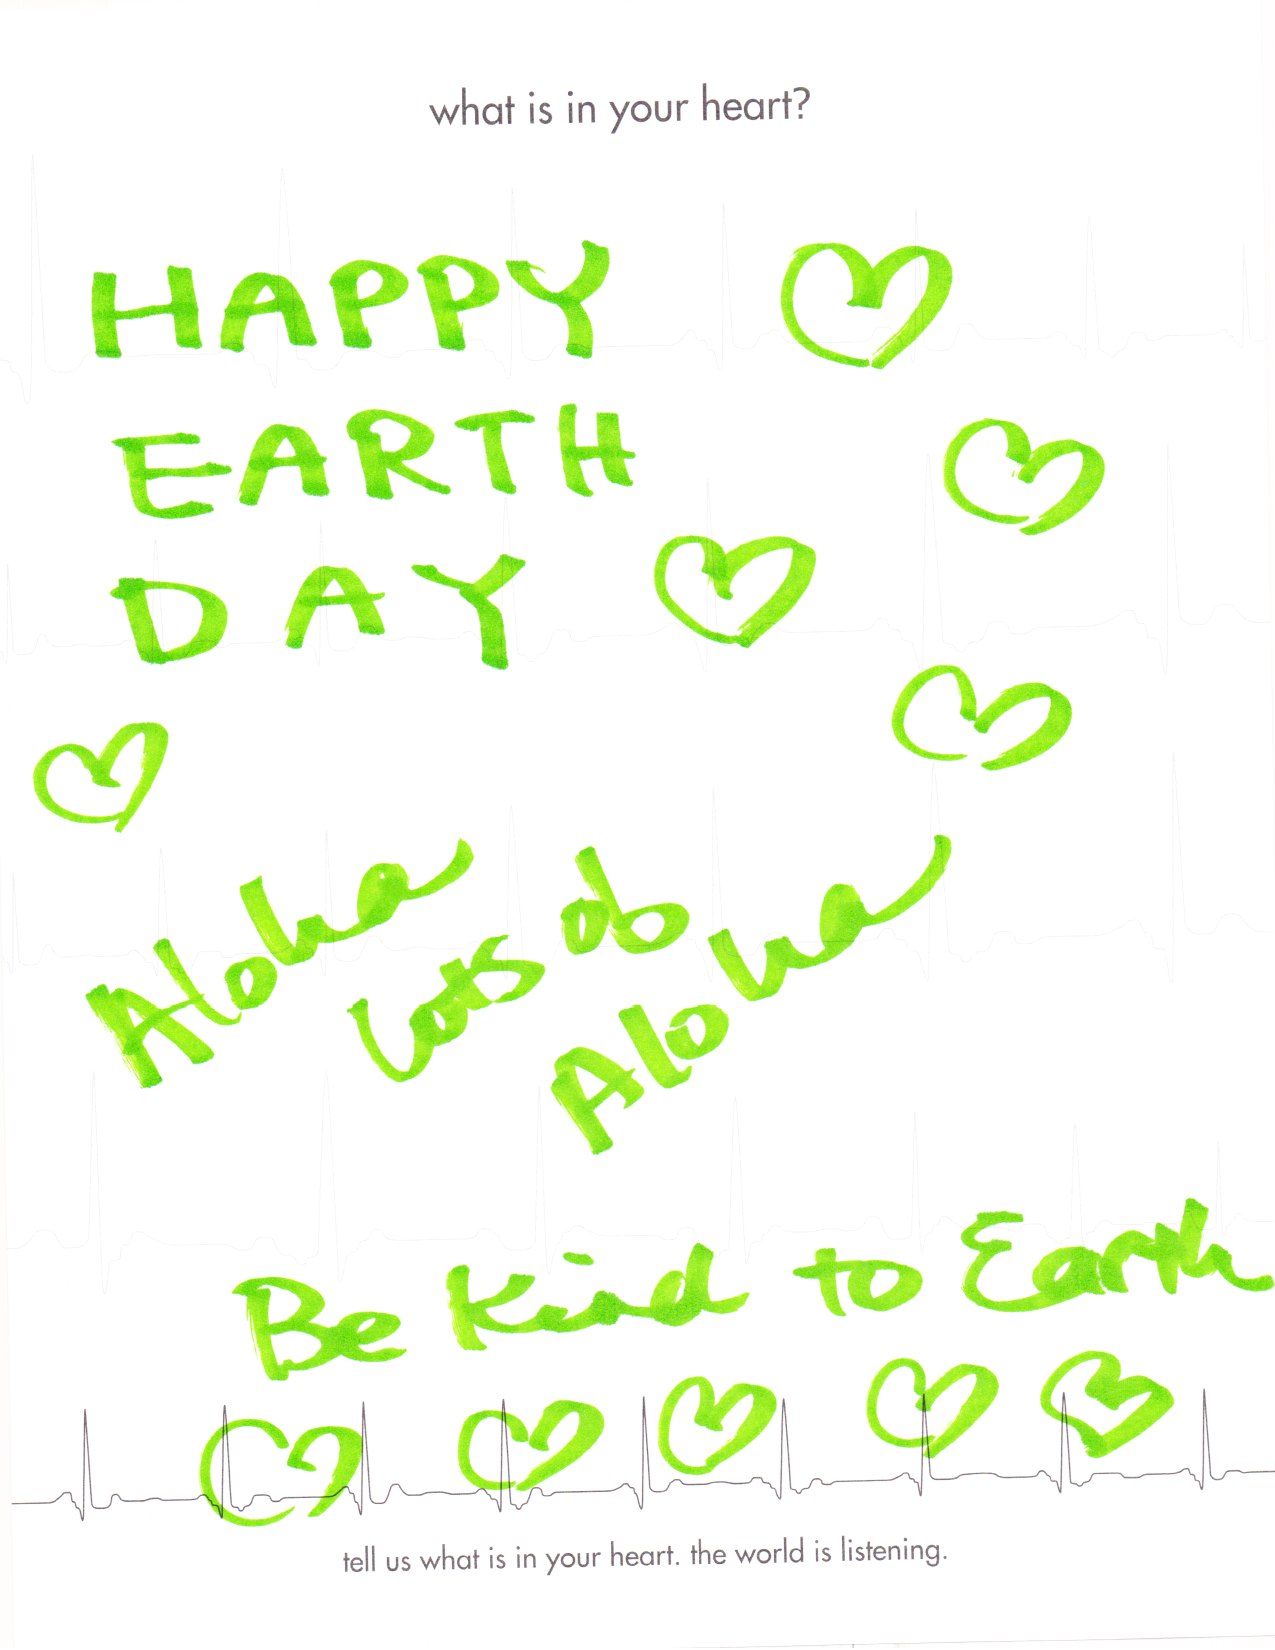 what is in your heart?
HAPPY
EARTH
DAY
Aloha
Lots of
Aloha
Be Kind to Earth
tell us what is in your heart. the world is listening.